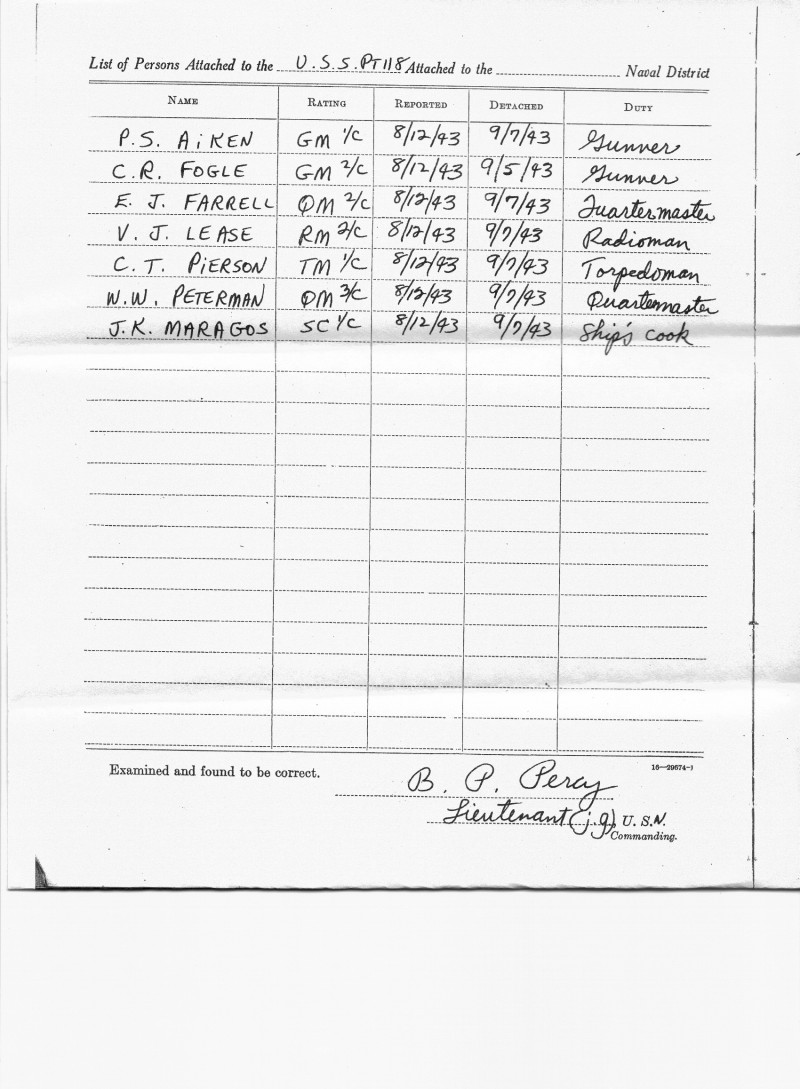 List of Persons Attached to the U.S.S. PT118 Attached to the Naval District
NAME RATING REPORTED DETACHED DUTY
P.S. AiKEN GM 1/c 8/12/43 9/7/43 Gunner
C.R. FOGLE GM 2/c 8/12/43 9/5/43 Gunner
E. J. FARRELL QM 2/c 8/12/43 9/7/43 Quartermaster
V. J. LEASE RM 2/c 8/12/43 9/7/43 Radioman
C. T. PiERSON TM 1/c 8/12/43 9/7/43 Torpedoman
W.W. PETERMAN QM 3/c 8/12/43 9/7/43 Quartermaster
J.K. MARAGOS SC 1/c 8/12/43 9/7/43 Ship's cook
16—29674-1
Examined and found to be correct. B. P. Percy
Lieutenant (j.g), U. S.N.
Commanding.